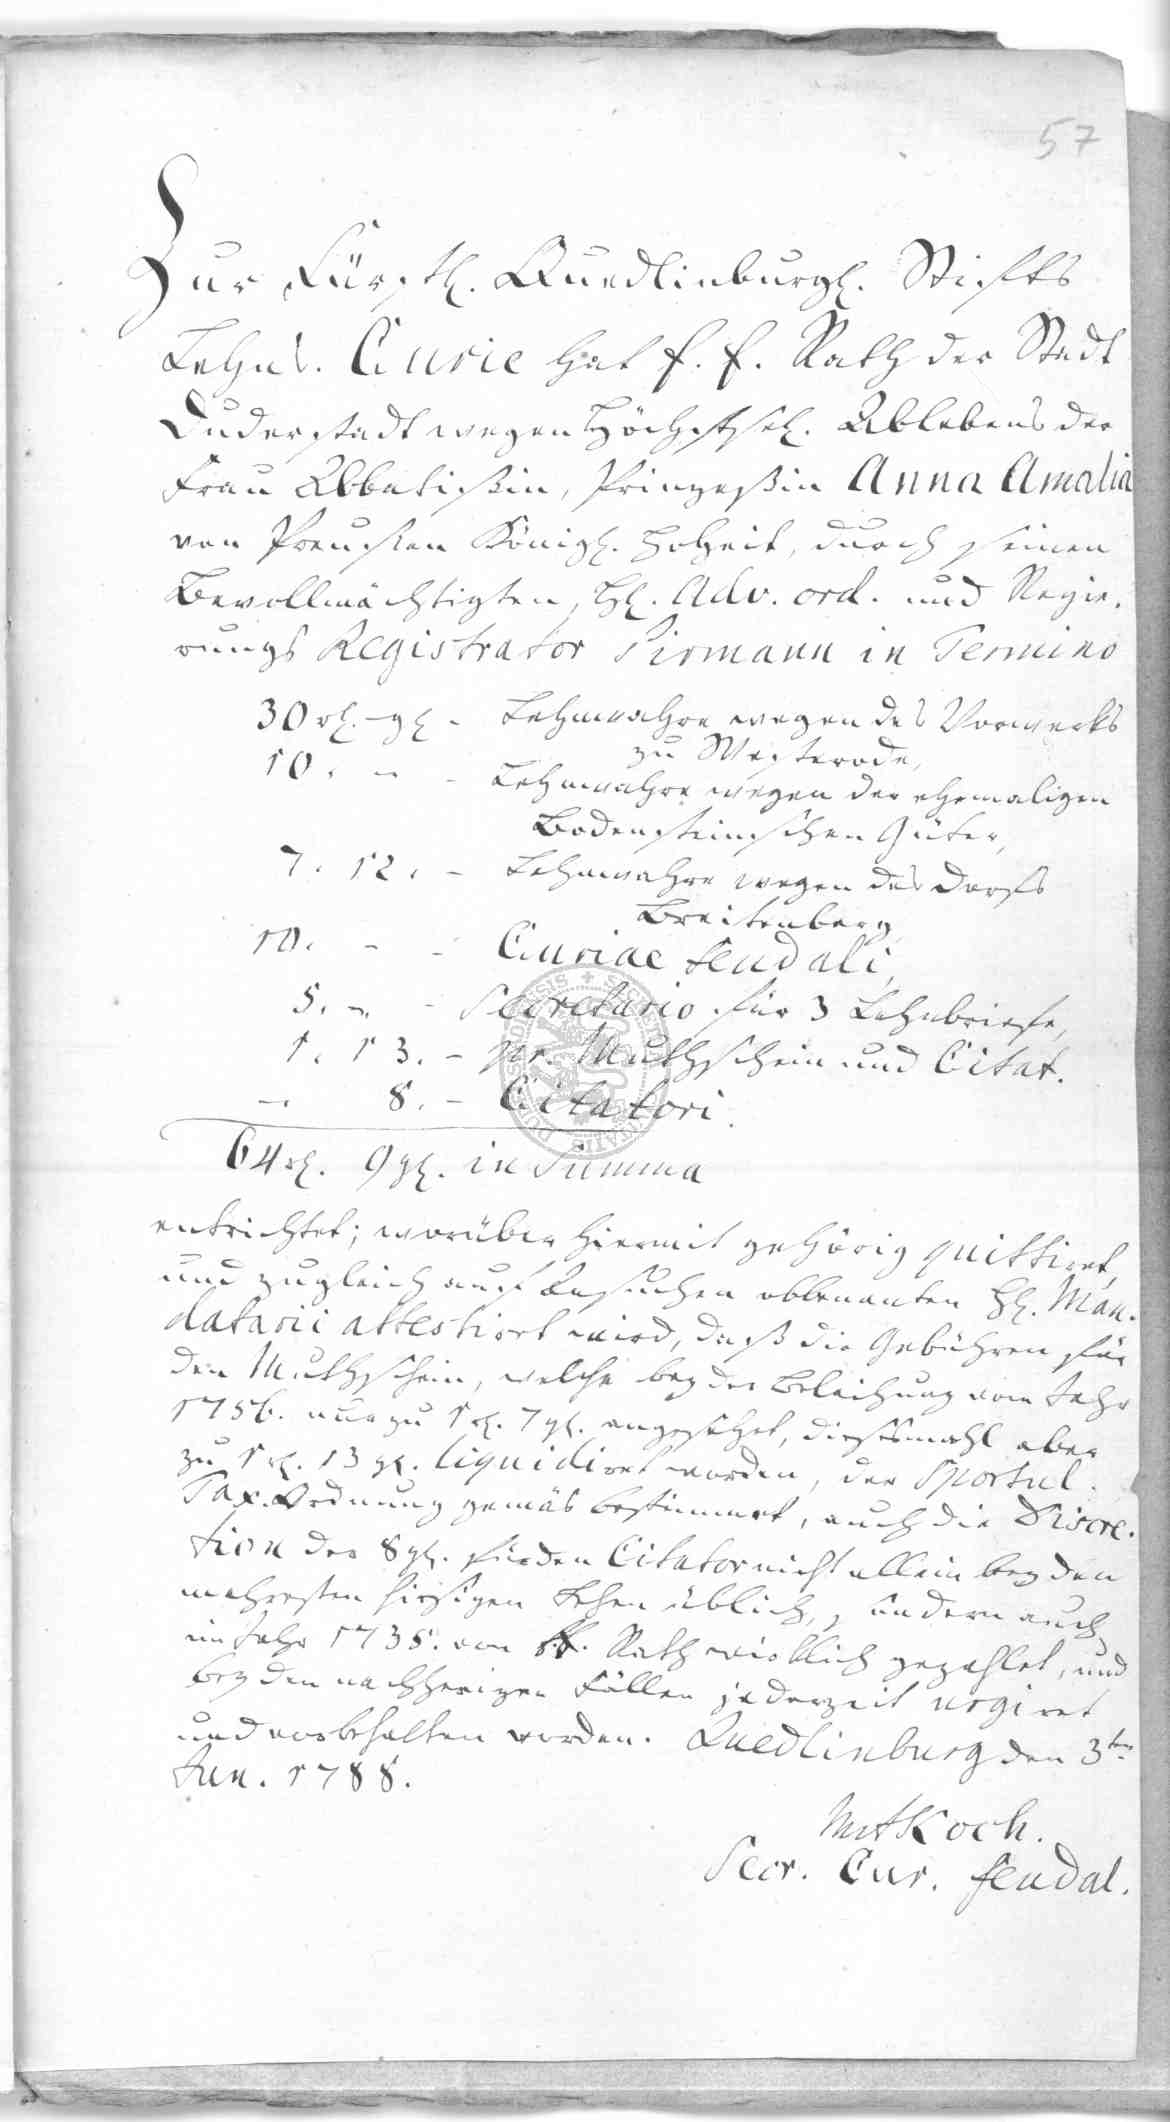 57
Zur Fürstl. Quedlinburgl. Stifts
Lehns. Curie hat E. E. Rath der Stadt
Duderstadt wegen Höchstsel. Ablebens der
Frau Abbatißin, Prinzeßin Anna Amalia
von Preussen Königl. Hoheit, durch seinen
Bevollmächtigten, H. Adv. ord. und Regie.
rungs Registrator Sirmann in Termino
30 rl. - gl. - Lehnwahre wegen des Vorwerks
zu Westerode,
10. - - Lehnwahre wegen der ehemaligen
Bodensteinschen Güter,
7. 12. - Lehnwahre wegen des Dorfs
Breitenberg,
10. - - Curiae feudali,
5. - - Secretario für 3 Lehnbriefe,
1. 13. - pr. Muthschein und Citat.
- 8. - Citatori.
64 rl. 9 gl. in Summa
entrichtet; worüber hiermit gehörig quittiret,
und zugleich auf Ansuchen obbenanten H. Man.
datarii attestiret wird, daß die Gebühren für
den Muthschein, welche bey der Beleihung vom Jahr
1756. nur zu 1 rl. 7 gl. angesetzet, diesesmahl aber
zu 1 rl. 13 gl. liquidiret worden, der Sportul.
Tax. Ordnung gemäs bestimmet, auch die Discre.
tion der 8 gl. für den Citator nicht allein bey den
mehresten hiesigen Lehen üblich, sondern auch
im Jahr 1735. von E. E. Rath wirklich gezahlet, und
bey den nachherigen Fällen jederzeit urgiret
und vorbehalten worden. Quedlinburg den 3ten
Jun. 1788.
Koch.
Secr. Cur. feudal.